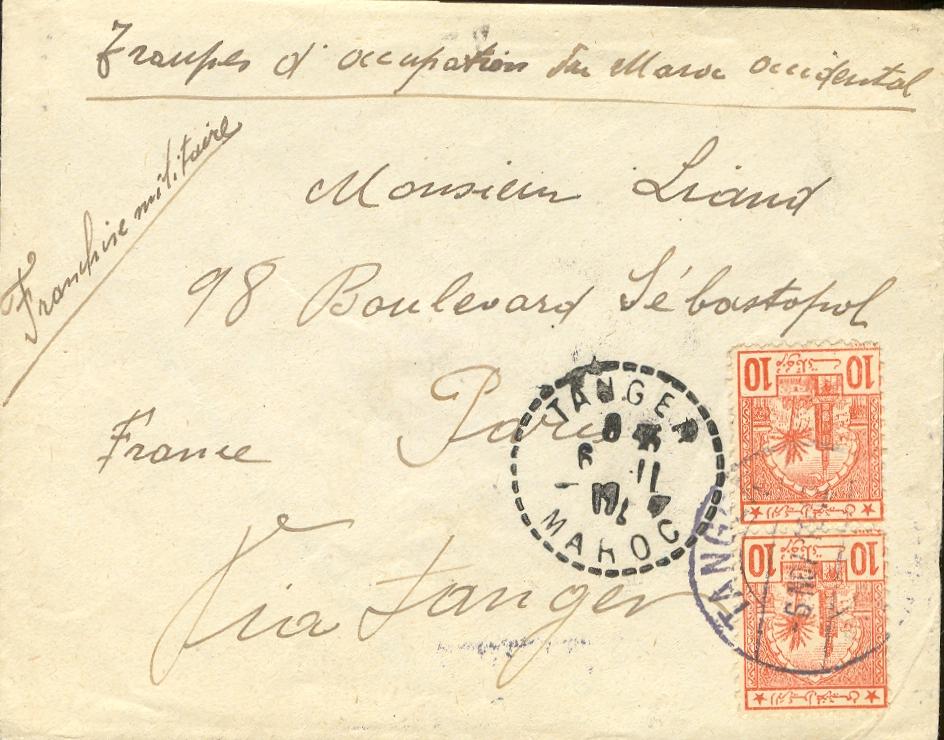 Troupes d'occupation du Maroc occidental
Franchise militaire
Monsieur Liand
98 Boulevard Sébastopol
Paris
France
Via Tanger
TANGER
6 11
MAROC
10 10
TANG
6 NOV
10 10